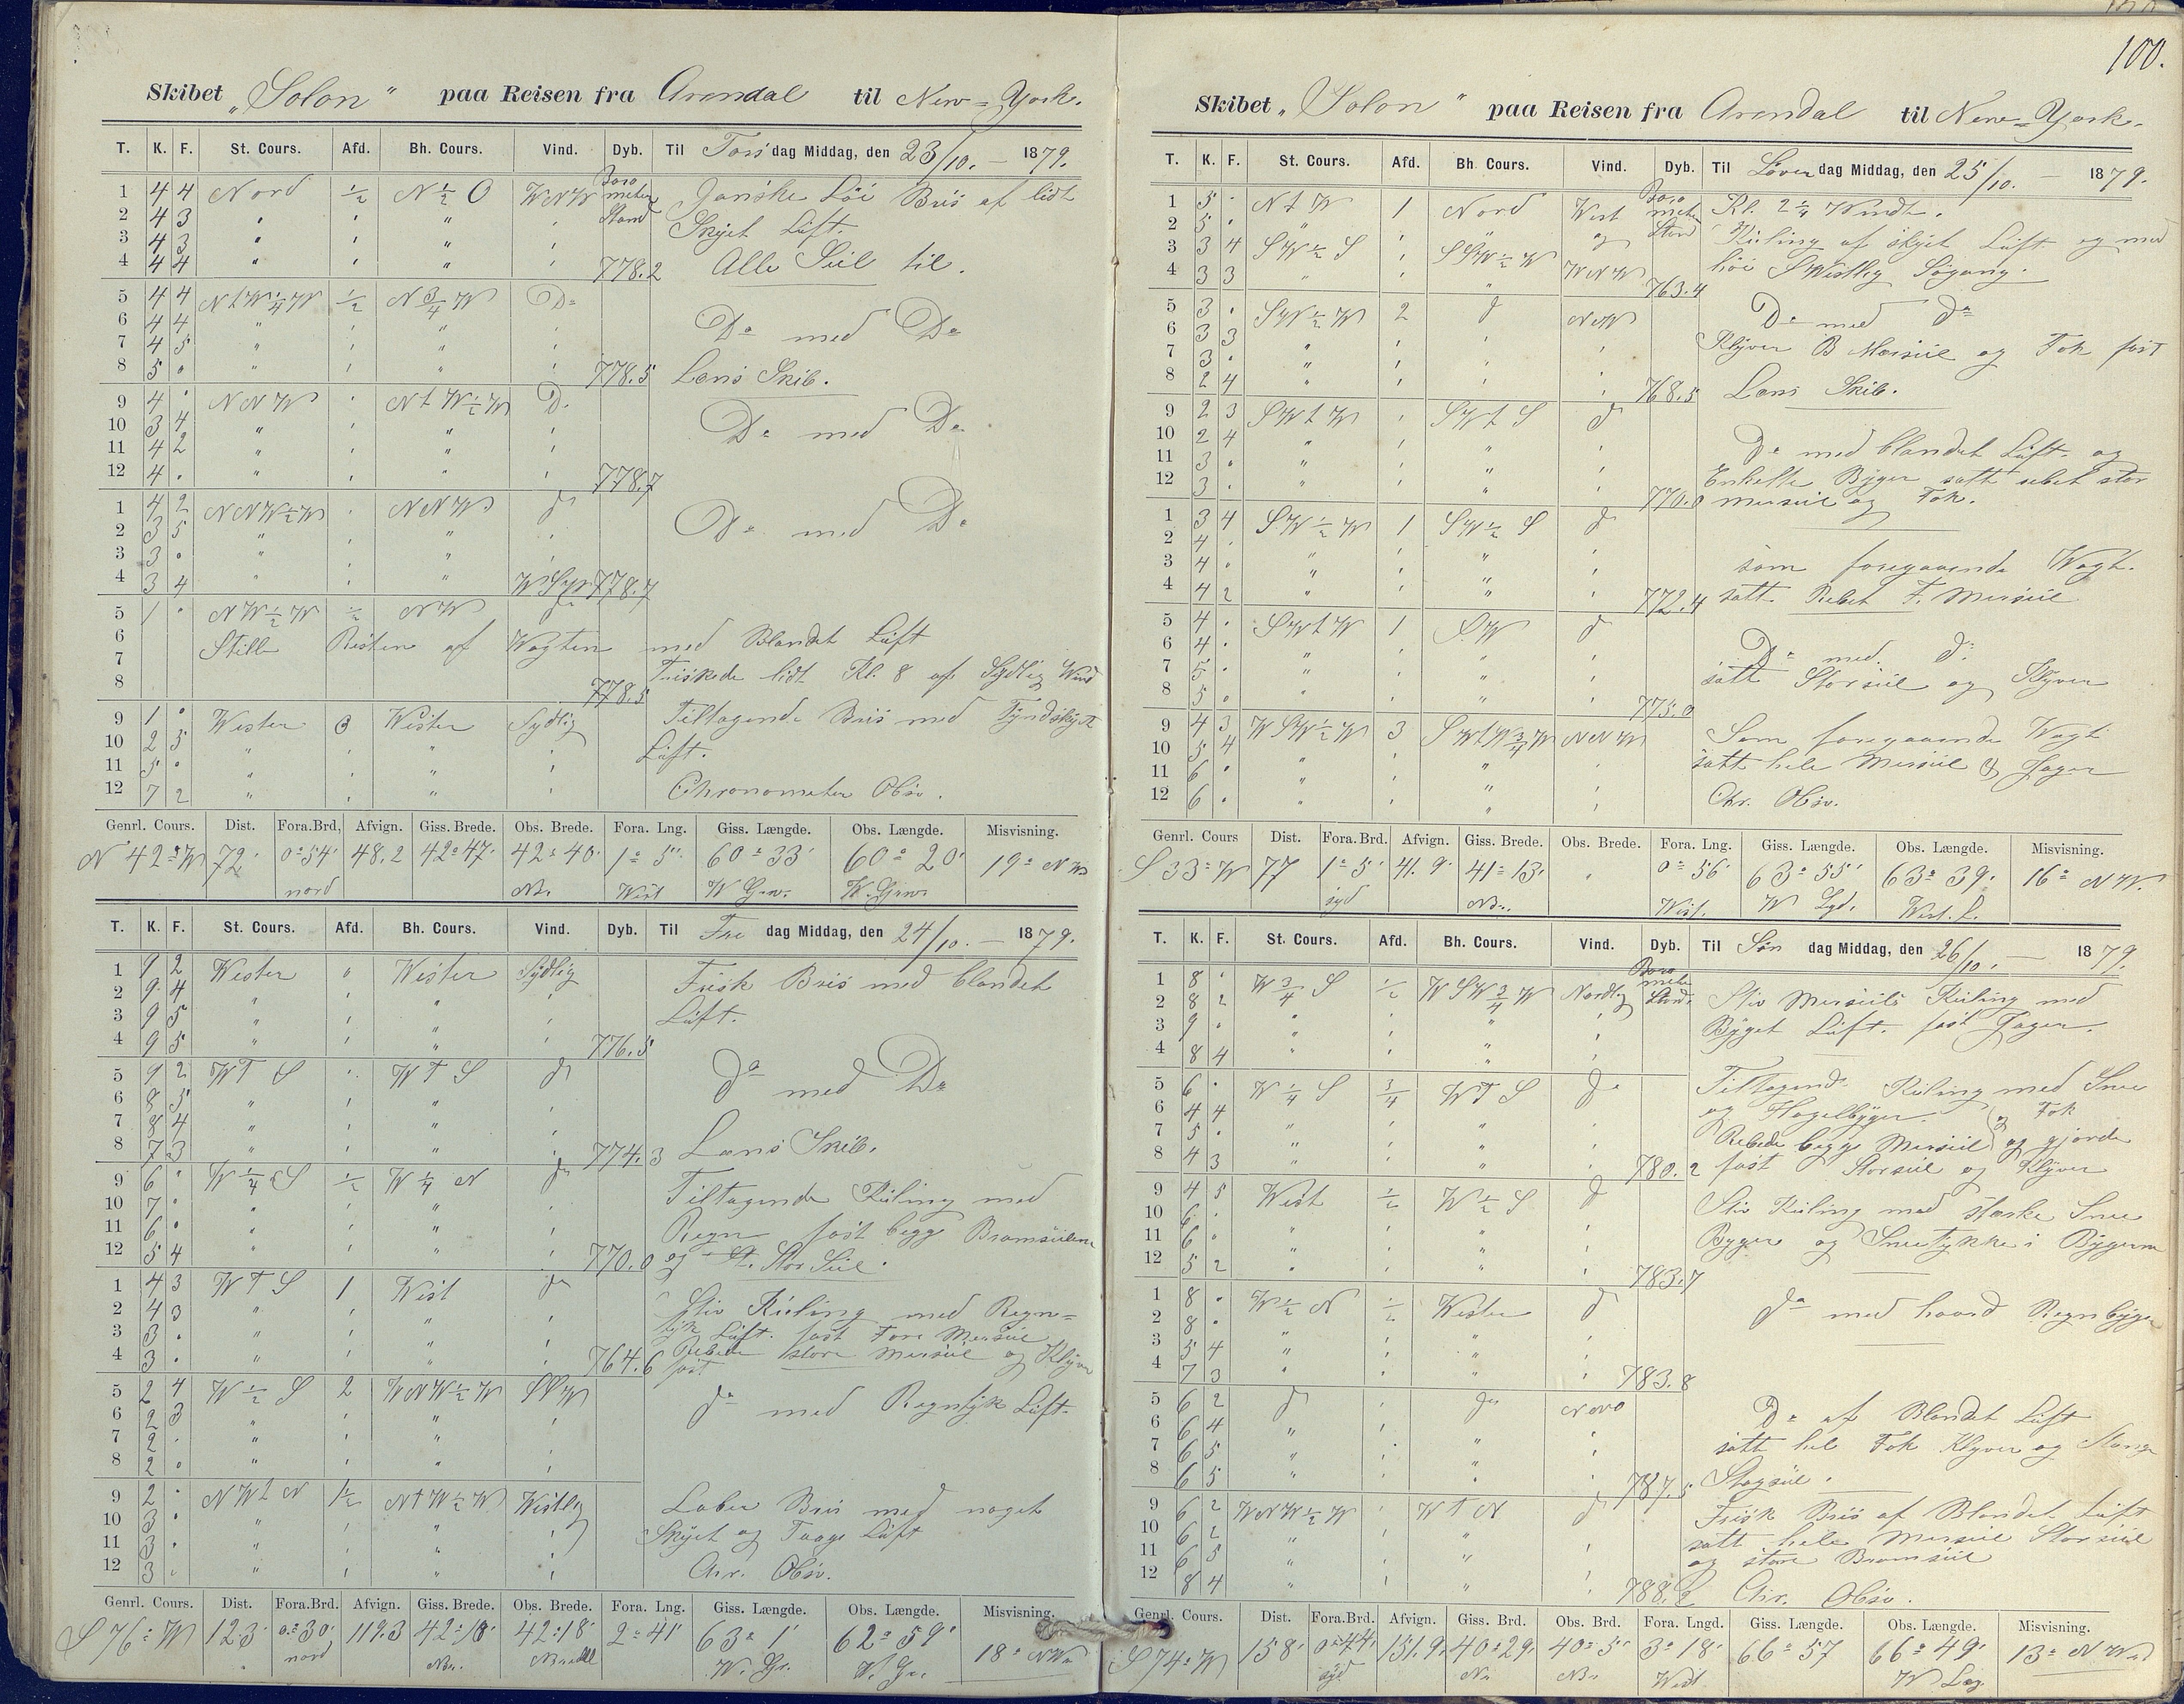 Skibet „Solon" paa Reisen fra Arendal til New=York.
T. K. F. St. Cours. Afd. Bh. Cours. Vind. Dyb. Til Torsdag Middag, den 23/10. — 1879.
Baro meter Stand
1 4 4 Nord ½ N ½ O WNW Ganske Löi Bris af lidt
2 4 3 " " " " Skyet Luft.
3 4 3 " " " "
4 4 4 " " " " 778.2 Alle Seil til.
5 4 4 N t W ¼ W ½ N ¾ W Do
6 4 4 " " " " Do med Do
7 4 5 " " " "
8 5 " " " " " 778.5 Læns Skib.
9 4 " NNW " N t W ½ W Do
10 3 4 " " " " Do med Do
11 4 2 " " " "
12 4 . " " " " 778.7
1 4 2 NNW ½ W . NNW do
2 3 5 " " " " Do med Do
3 3 . " " " "
4 3 4 " " " 778.7
5 1 . NW ½ W ½ NW do
6 Stille Resten af Vagten med Blandet Luft
7 Friskede lidt Kl. 8 af Sydlig Wind
8 778.5
9 1 . Wester 0 Wester Sydlig Tiltagende Bris med Tyndskyet
10 2 5 " " " " Luft.
11 5 . " " " "
12 7 2 " " " " Chronometer Obsv.
Genrl. Cours. Dist. Fora.Brd, Afvign. Giss. Brede. Obs. Brede. Fora. Lng. Giss. Længde. Obs. Længde. Misvisning.
N 42° W 72' 0° 54' 48.2 42° 47' 42° 40' 1° 5' 60° 33' 60° 20' 19° NW
nord Nr. West W Grw. W. Grw.
T. K. F. St. Cours. Afd. Bh. Cours. Vind. Dyb. Til Fre dag Middag, den 24/10. — 1879.
1 9 2 Wester 0 Wester Sydlig Frisk Bris med blandet
2 9 4 " " " " Luft.
3 9 5 " " " "
4 9 5 " " " " 776.5
5 9 2 W T S " W T S do do med Do
6 8 5 " " " "
7 8 4 " " " "
8 7 3 " " " " 774.3 Læns Skib.
9 6 " W ¼ S ½ W ¼ N do Tiltagende Kuling med
10 7 . " " " " Regn fast begge Bramseilene
11 6 . " " " "
12 5 4 " " " " 770.0 og Stor Seil.
1 4 3 W T S 1 West do Stiv Kuling med Regn=
2 4 3 " " " " tyk Luft. fast Fore Mersseil
3 3 . " " " " Rebede store mersseil og Klyver
4 3 . " " " " 764.6 fast
5 2 4 W ½ S 2 WNW ½ W SSW do med Regntyk Luft.
6 2 3 " " " "
7 2 . " " " "
8 2 . " " " "
9 2 . NW t N 1½ N t W ½ W Westlig Laber Bris med noget
10 3 . " " " " Skyet og Taage Luft
11 3 . " " " "
12 3 . " " " " Chr. Obsv.
Genrl. Cours. Dist. Fora.Brd. Afvign. Giss. Brede. Obs. Brede. Fora. Lng. Giss. Længde. Obs. Længde. Misvisning.
S 76° W 123' 0° 30' 119.3 42° 10' 42° 18' 2° 41' 63° 1' 62° 59' 18° NW
nord Nr. W. Gr. W. Gr.
100.
Skibet „Solon" paa Reisen fra Arendal til New=York.
T. K. F. St. Cours. Afd. Bh. Cours. Vind. Dyb. Til Löverdag Middag, den 25/10. — 1879.
Baro meter Stand
1 5 . N t W 1 Nord West Kl. 2¼ Wendt.
2 5 . " " " og Kuling af skyet Luft og med
3 3 4 SW ½ S " SSW ½ W WNW höi SWestlig Sögang.
4 3 3 " " " 763.4
5 3 . SW ½ W 2 do NNW Do med do
6 3 3 " " " " Klyver B Mersseil og Fok fast
7 3 . " " " "
8 2 4 " " " " 768.5 Læns Skib.
9 2 3 SW t W " SW t S do
10 2 4 " " " " Do med blandet Luft. og
11 3 . " " " " Enkelte Byger satt rebet stor
12 3 . " " " " 770.0 mersseil og Fok.
1 3 4 SW ½ W 1 SW ½ S do
2 4 . " " " "
3 4 . " " " " som foregaaende Vagt.
4 4 2 " " " " 772.4 satt Rebet F. Mersseil
5 4 . SW t W 1 SW do
6 4 . " " " " Do med do
7 5 . " " " " satt Storseil og Klyver
8 5 . " " " " 775.0
9 4 3 WSW ½ W 3 SW t W ¾ W NNW Som foregaaende Vagt
10 5 4 " " " " satt hele Mersseil & Jager
11 6 . " " " "
12 6 . " " " " Chr. Obsv.
Genrl. Cours Dist. Fora.Brd. Afvign. Giss. Brede. Obs. Brede. Fora. Lng. Giss. Længde. Obs. Længde. Misvisning.
S 33° W 77 1° 5' 41.9 41° 13' " 0° 56' 63° 55' 63° 39' 16° NW.
syd Nr. West. West.
T. K. F. St. Cours. Afd. Bh. Cours. Vind. Dyb. Til Søn dag Middag, den 26/10. — 1879.
Baro meter Stand
1 8 . W ¾ S ½ WSW ¾ W Nordlig Stiv Mersseils Kuling med
2 8 2 " " " " Byget Luft. fast Jager.
3 9 . " " " "
4 8 4 " " " "
5 6 . W ¼ S ¾ W T S do Tiltagende Kuling med Snee
6 4 4 " " " " og Hagelbyger.
7 5 . " " " " Rebede begge Mersseil og Fok og gjorde
8 4 3 " " " " 780.2 fast Storseil og Klyver
9 4 5 West ½ W ½ S do Stiv Kuling med stærke Snee
10 6 . " " " " Byger og Sneetykke i Bygerne
11 6 . " " " "
12 5 2 " " " " 783.7
1 8 . W ½ N ½ Wester do do med haard Regnbyger
2 8 . " " " "
3 5 4 " " " "
4 7 3 " " " " 783.8
5 6 2 do " do NNO Do af Blandet Luft
6 6 4 " " " " satt hel Fok Klyver og Stange
7 6 5 " " " "
8 6 5 " " " " 787.5 Stagseil.
9 6 2 WNW ½ W " W T N do Frisk Bris af Blandet Luft
10 6 2 " " " " satt hele mersseil Storseil
11 6 5 " " " " og store Bramseil
12 8 4 " " " " 788.2 Chr. Obsv.
Genrl. Cours. Dist. Fora.Brd. Afvign. Giss. Brd. Obs. Brd. Fora. Lngd. Giss. Længde. Obs. Længde. Misvisning.
S 74° W 158' 0° 44' 151.9 40° 29' 40° 5' 3° 18' 66° 57 66° 49' 13° NW
syd Nr. Nr. West. W Læg.